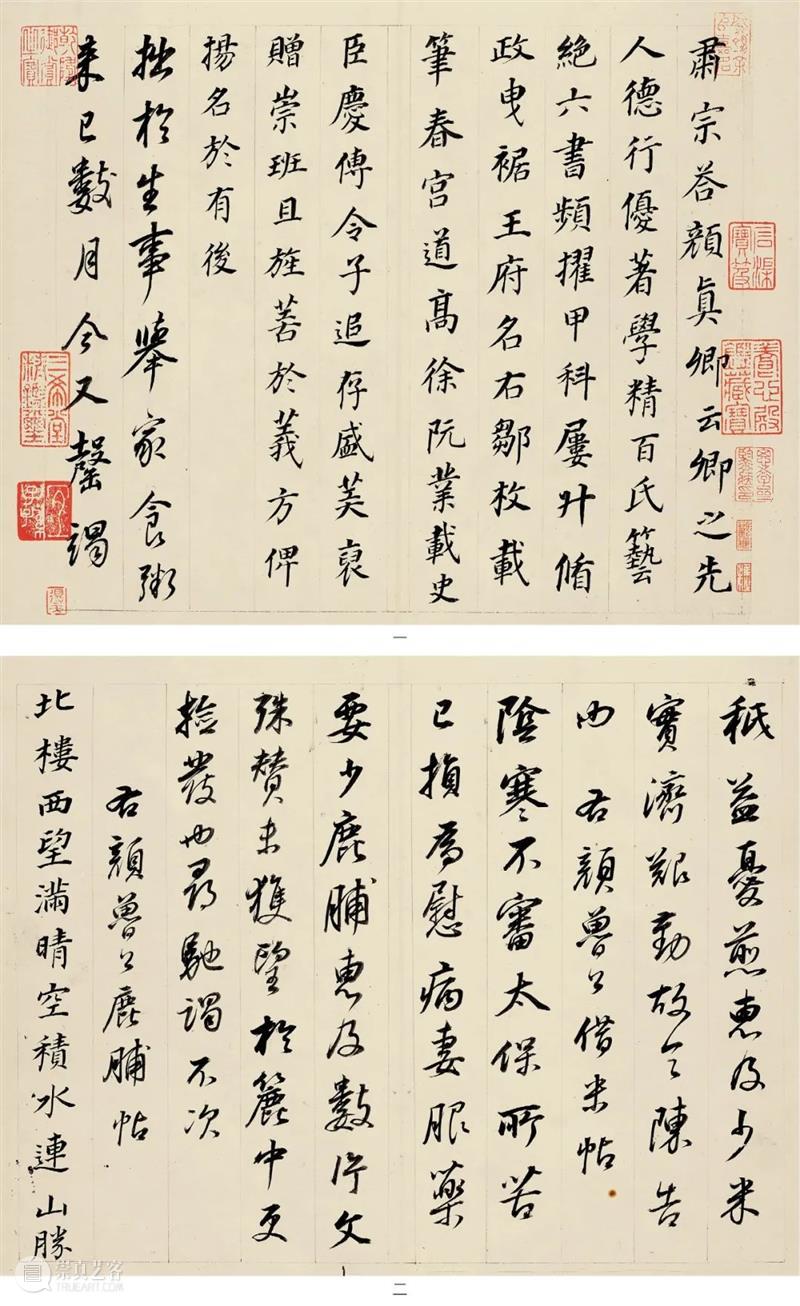 肅宗荅顏真卿云卿之先
人德行優著學精百氏藝
絕六書頻擢甲科屢升循
政曳裾王府名右鄒枚載
筆春宮道高徐阮業載史
臣慶傳令子追存盛美裒
贈崇班且旌善於義方俾
揚名於有後
拙於生事舉家食粥
来已數月今又罄竭
一
秖益憂煎惠及少米
實濟艱勤故令陳告
也 右顏魯公借米帖
陰寒不審太保所苦
已損為慰病妻服藥
要少鹿脯惠及數片文
殊贊未獲望於簏中更
撿發也尋馳謁不次
右顏魯公鹿脯帖
北樓西望滿晴空積水連山勝
二
崇真艺客
TRUEART.COM